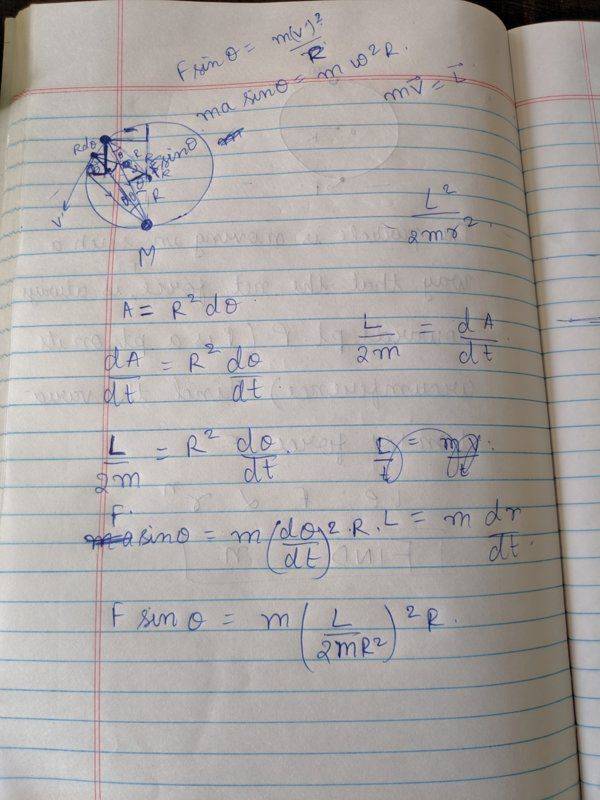 F sin θ = m(v)²/R
ma sin θ = m ω² R.
mv⃗ = L⃗
Rdθ
R
sin θ
R
V
M
L²/2mr²
A = R² dθ
L/2m = dA/dt
dA/dt = R² dθ/dt
L/2m = R² dθ/dt.
L/t = m v/t
F sin θ = m (dθ/dt)² · R.
L = m dr/dt
F sin θ = m (L/2mR²)² R.